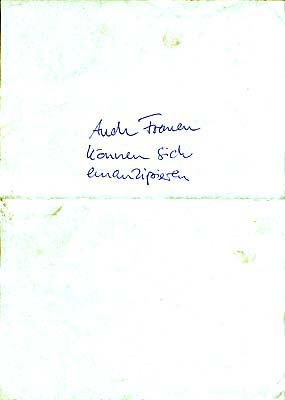 Auch Frauen
können sich
emanzipieren